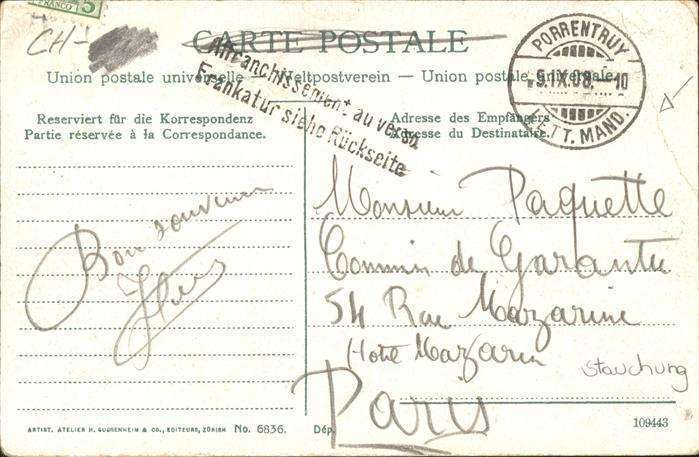 FRANCO 5
CH-
CARTE POSTALE
Union postale universelle – Weltpostverein – Union postale universale
Affranchissement au verso.
Frankatur siehe Rückseite
PORRENTRUY
9.IX.08.-10
LETT. MAND.
Reserviert für die Korrespondenz
Partie réservée à la Correspondance.
Adresse des Empfängers
Adresse du Destinataire.
Bon souvenir
Monsieur Paquette
Commis de Garantie
54 Rue Mazarine
Hotel Mazarin
Stauchung
Paris
ARTIST. ATELIER H. GUGGENHEIM & CO., EDITEURS, ZÜRICH No. 6836. Dép.
109443